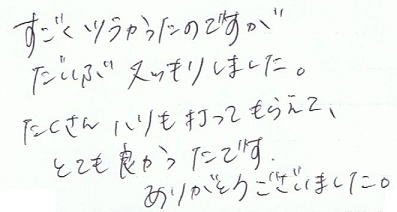 すごくツラかったのですが
だいぶスッキリしました。
たくさんハリも打ってもらえて、
とても良かったです.
ありがとうございました。